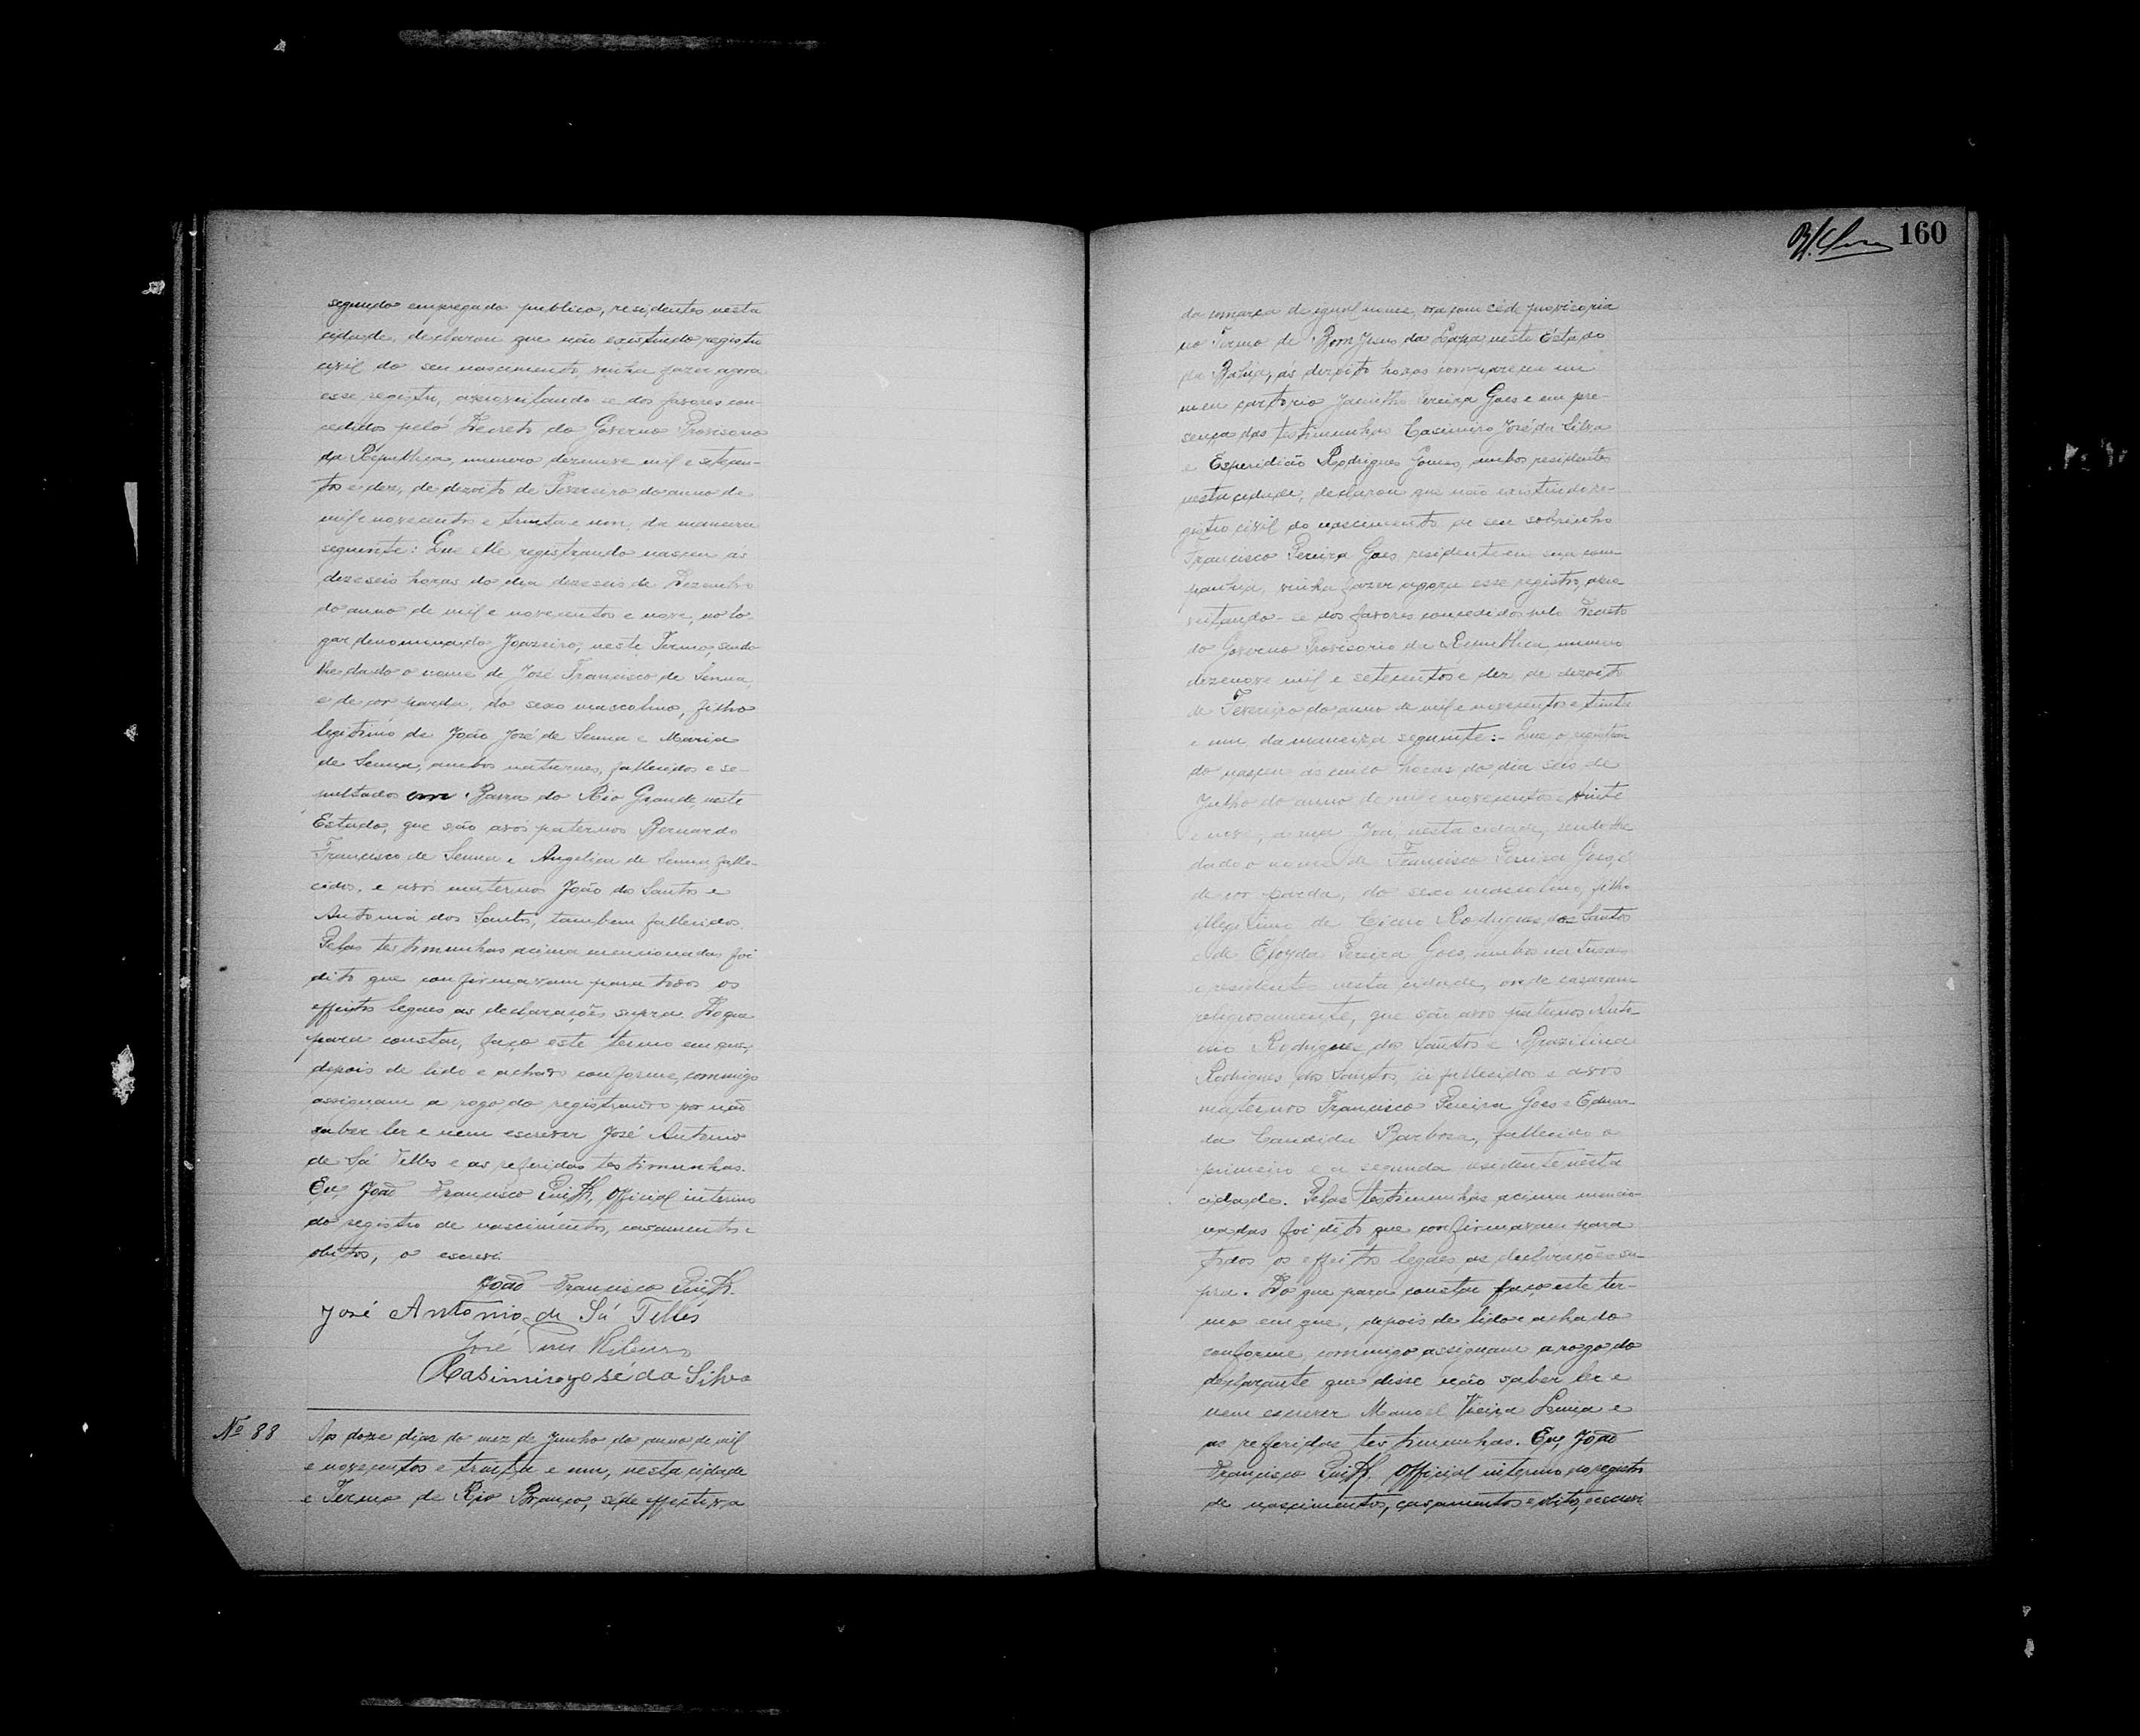 segundo empregado publico, residentes nesta
cidade, declarou que não existindo registro
civil do seu nascimento, vinha fazer agora
esse registro, aproveitando-se dos favores con-
cedidos pelo Decreto do Governo Provisorio
da Républica, numero dezenove mil e setecen-
tos e dez, de dezoito de Fevereiro do anno de
mil e novecentos e trinta e um, da maneira
seguinte: Que elle registrando nasceu ás
dezeseis horas do dia dezeseis de Dezembro
do anno de mil e novecentos e nove, no lo-
gar denominado Joazeiro, neste Termo, sendo
lhe dado o nome de José Francisco de Senna,
e de cor parda, do sexo masculino, filho
legitimo de João José de Senna e Maria
de Senna, ambos naturaes, fallecidos e se-
pultados em Barra do Rio Grande, neste
Estado, que são avós paternos Bernardo
Francisco de Senna e Angelica de Senna, falle-
cidos, e avós maternos João dos Santos e
Antonia dos Santos, tambem fallecidos.
Pelas testimunhas acima mencionadas foi
dito que confirmavam para todos os
effeitos legaes as declarações supra. Do que
para constar, faço este termo em que,
depois de lido e achado conforme, commigo
assignam a rogo do registrando por não
saber ler e nem escrever José Antonio
de Sá Telles e as referidas testimunhas.
Eu, João Francisco Official interino
do registro de nascimentos, casamentos e
obitos, o escrevi.
João Francisco
José Antonio de Sá Telles
José Ribeiro
Casimiro José da Silva
Nº 88
Aos doze dias do mez de Junho do anno de mil
e novecentos e trinta e um, nesta cidade
e Termo de Rio Branco, séde effectiva
160
da comarca de igual nome, ora com séde provisoria
no Termo de Bom Jesus da Lapa neste Estado
da Bahia, ás dezoito horas compareceu em
meu cartorio Jacintho Pereira Goes e em pre-
sença das testimunhas Casimiro José da Silva
e Esperidião Rodrigues Gomes, ambos residentes
nesta cidade, declarou que não existindo re-
gistro civil do nascimento de seu sobrinho
Francisco Pereira Goes, residente em sua com-
panhia, vinha fazer agora esse registro, apro-
veitando-se dos favores concedidos pelo Decreto
do Governo Provisorio da Républica, numero
dezenove mil e setecentos e dez, de dezoito
de Fevereiro do anno de mil e novecentos e trinta
e um, da maneira seguinte:- Que o registran-
do nasceu ás cinco horas do dia seis de
Julho do anno de mil e novecentos e vinte
e nove, nesta cidade, sendo-lhe
dado o nome de Francisco Pereira Goes, é
de cor parda, do sexo masculino, filho
illegitimo de Cicero Rodrigues dos Santos
e de Pereira Goes, ambos naturaes
e residentes nesta cidade, onde casaram
religiosamente, que são avós paternos Anto-
nio Rodrigues dos Santos e
Rodrigues dos Santos, já fallecidos e avós
maternos Francisco Pereira Goes e Eduar-
da Candida Barbosa, fallecido o
primeiro e a segunda residente nesta
cidade. Pelas testimunhas acima mencio-
nadas foi dito que confirmavam para
todos os effeitos legaes as declarações su-
pra. Do que para constar faço este ter-
mo em que, depois de lido e achado
conforme, commigo assignam a rogo do
declarante que disse não saber ler e
nem escrever Manoel Vieira e
as referidas testimunhas. Eu, João
Francisco Official interino do registro
de nascimentos, casamentos e obitos, escrevi